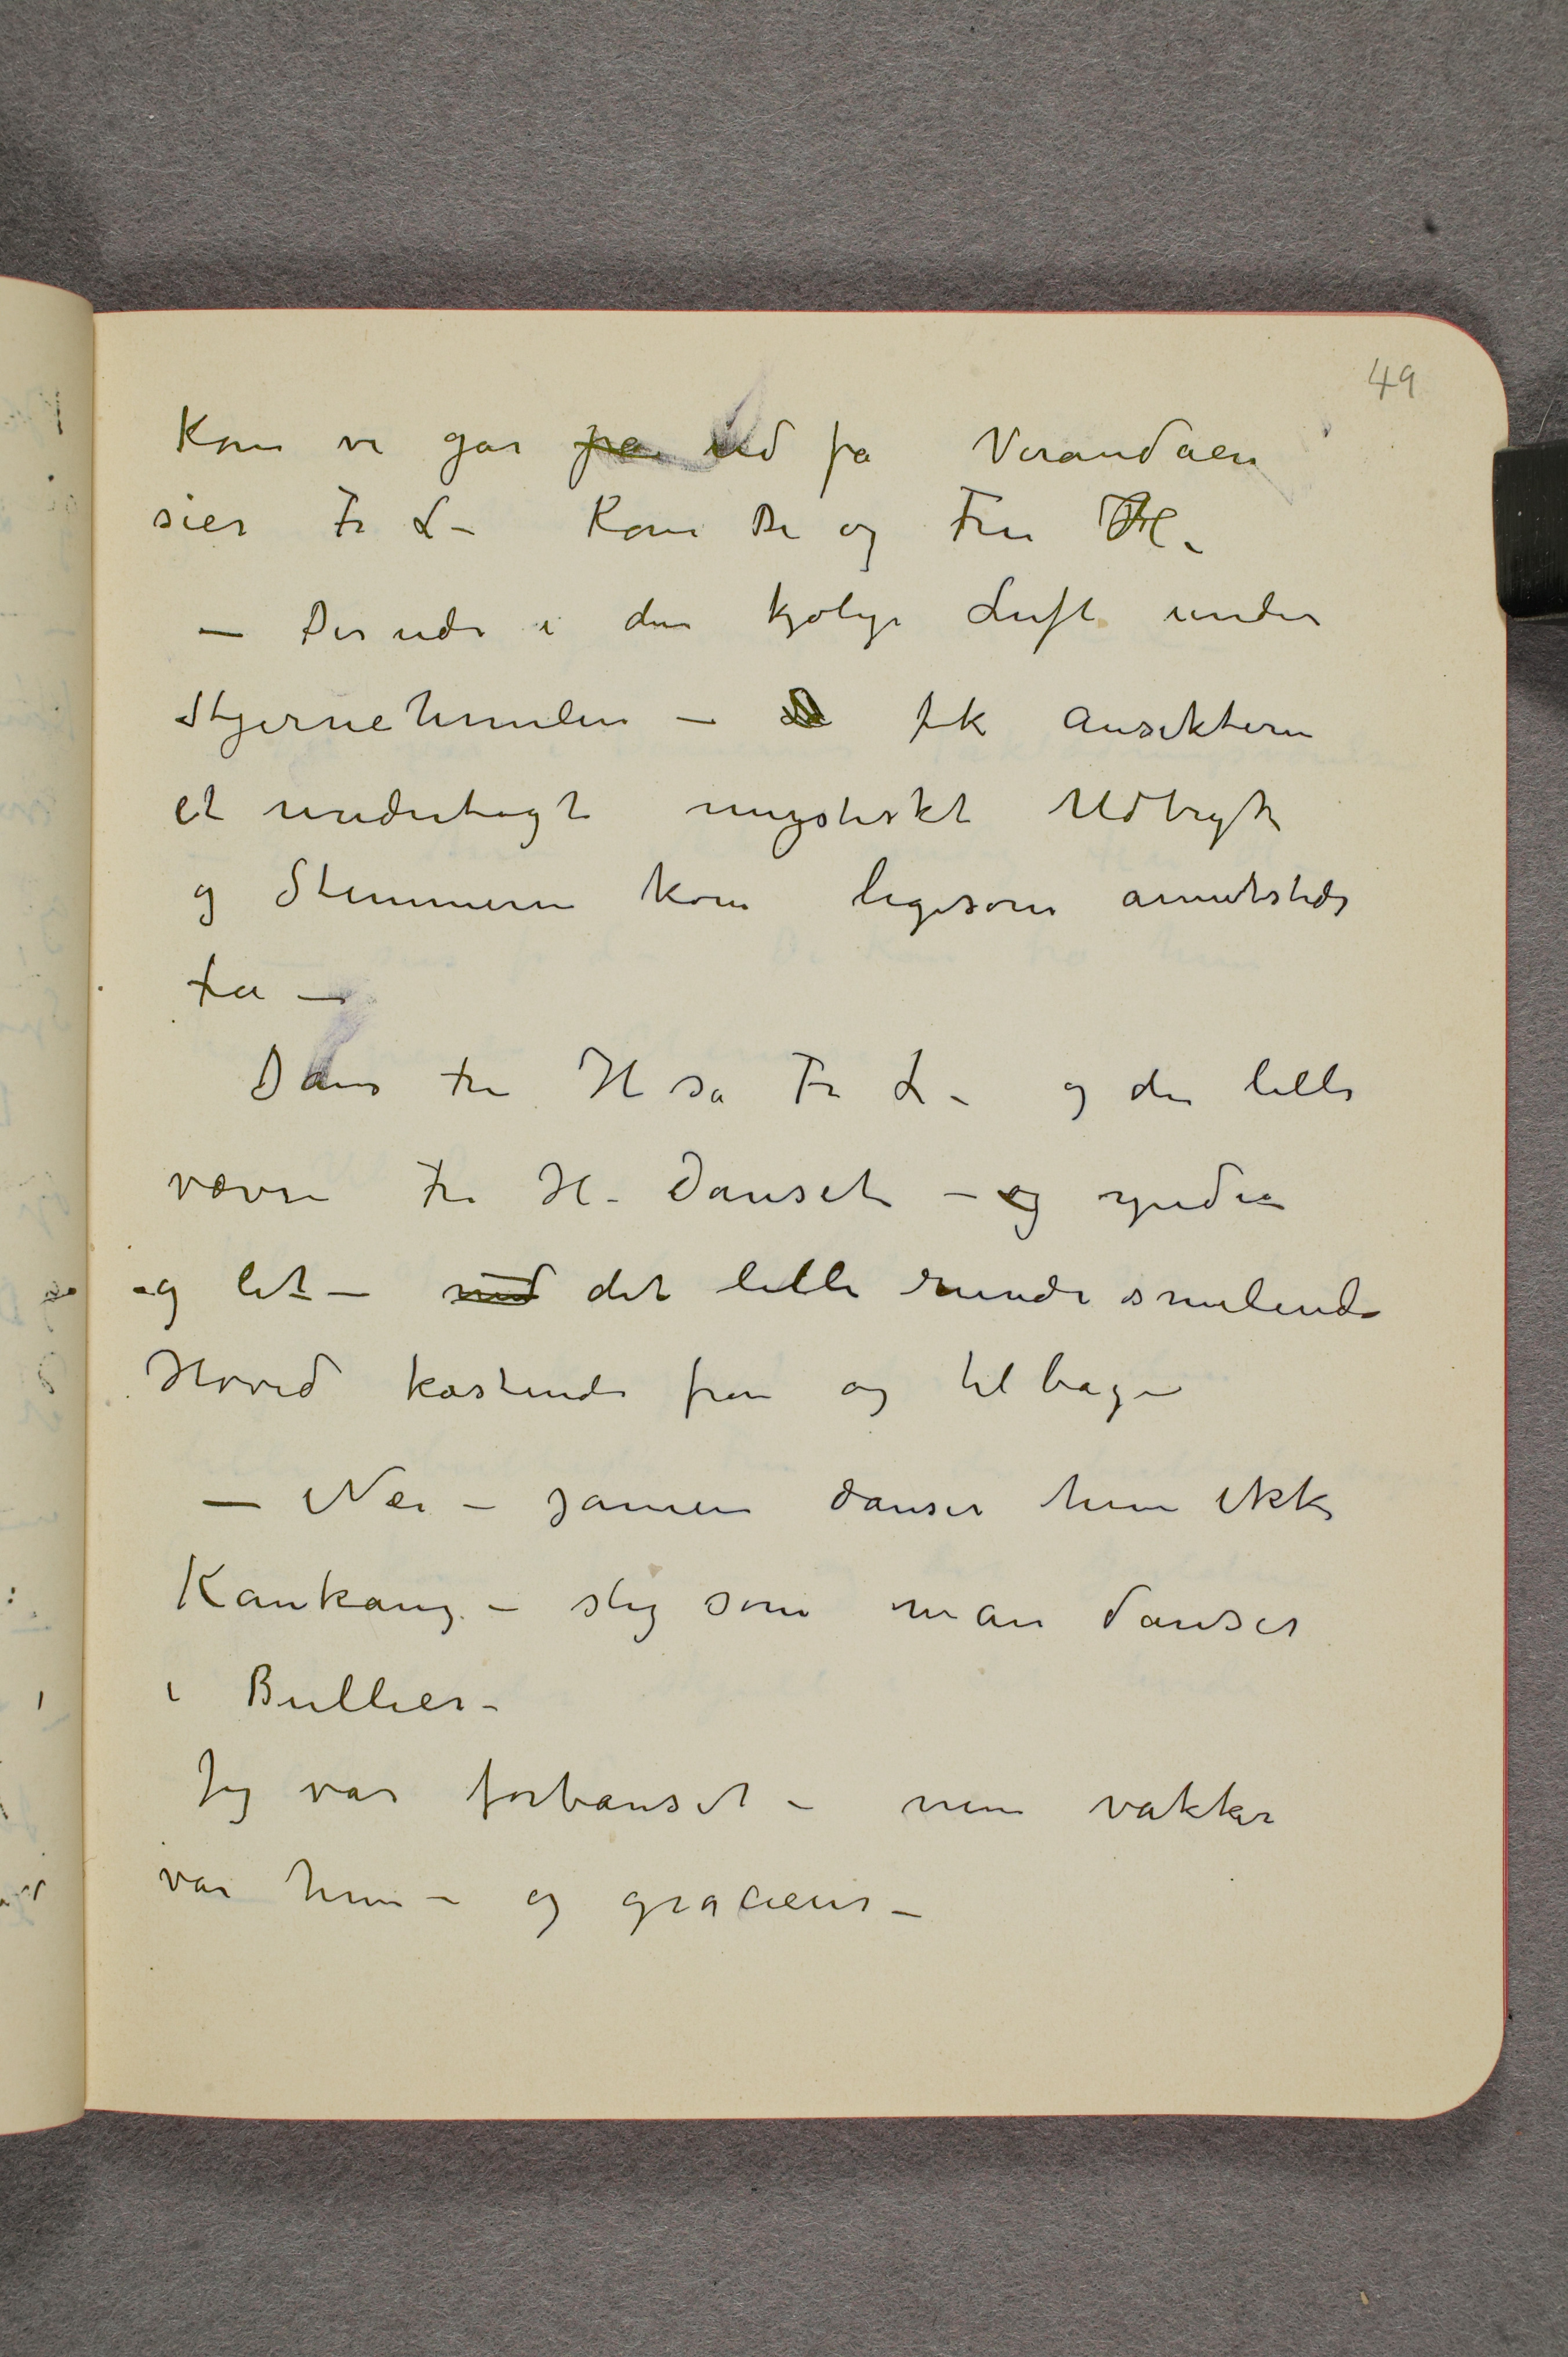 49
Kom vi går på ud på Verandaen
sier Fr L – Kom De og Fru H.
– Derude i den kjølige Luft under
Stjernehimlen – fik ansikterne
et underligt mystiskt Udtryk
og Stemmerne kom ligesom annetsteds
fra –
Dans Fru H sa Fr L – og den lille
vævre Fru H – Dansed – og yndig
og let – med det lille runde smilende
Hoved kastende frem og tilbage
– Nei – jamen danser hun ikke
Kankang – slig som man danser
i Bullier –
Jeg var forbauset – men vakker
var hun – og graciøs –